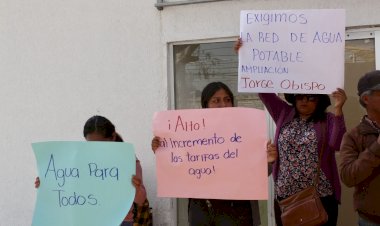 Exigimos
LA RED DE AGUA
POTABLE
AMPLIACIÓN
Jorge Obispo
¡Alto!
al Incremento de
las tarifas del
agua!
Agua Para
Todos.